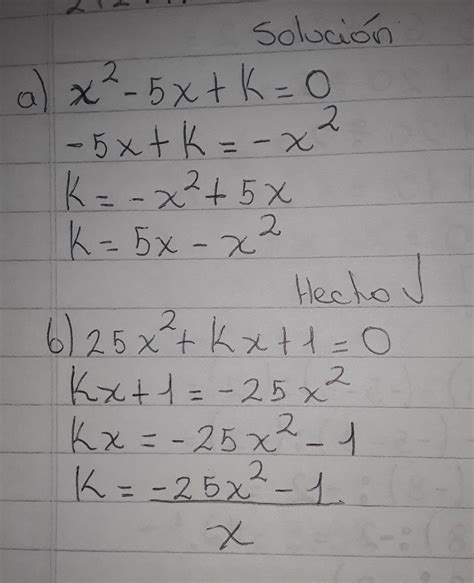 Solución
a) x² - 5x + K = 0
-5x + K = -x²
K = -x² + 5x
K = 5x - x²
Hecho √
b) 25x² + Kx + 1 = 0
Kx + 1 = -25x²
Kx = -25x² - 1
K = -25x² - 1
x